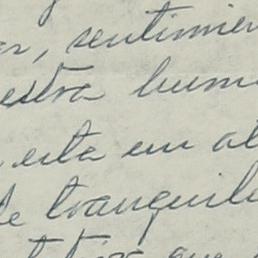 ar, sentimien
estra hum
esta em al
de tranquil
que